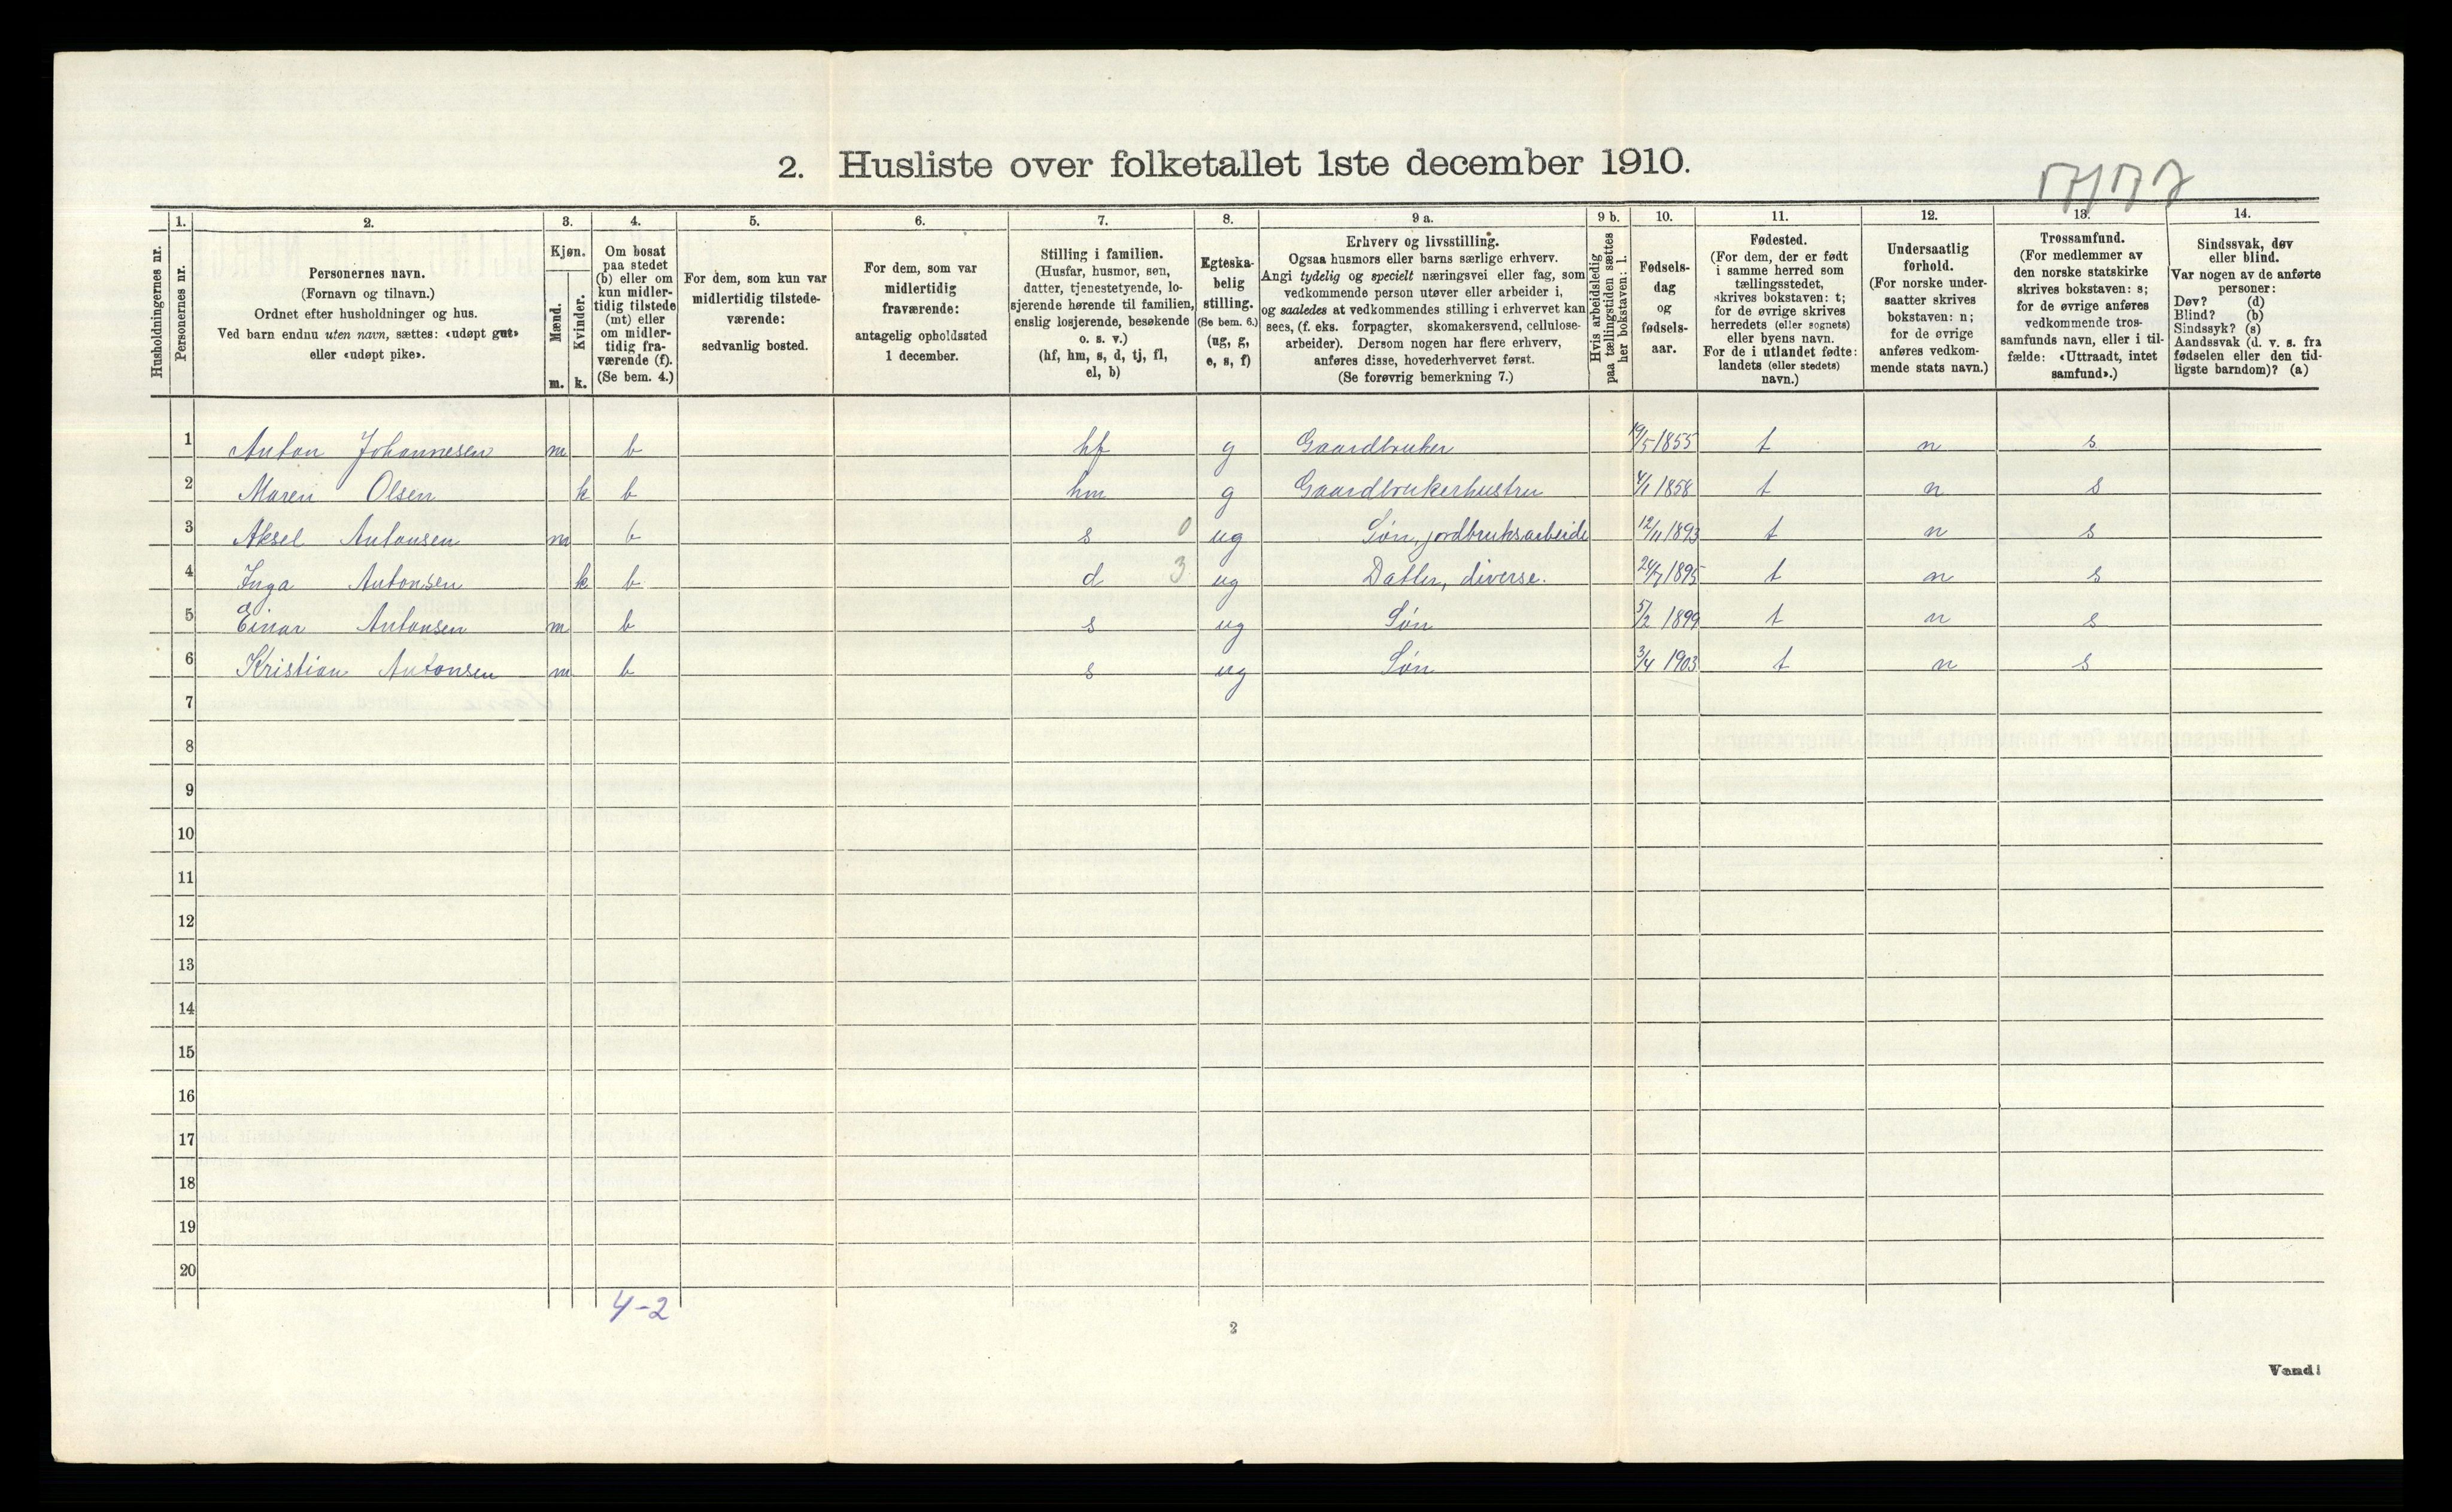 2. Husliste over folketallet 1ste december 1910.
Husholdningernes nr.
1.
Personernes nr.
2.
Personernes navn.
(Fornavn og tilnavn.)
Ordnet efter husholdninger og hus.
Ved barn endnu uten navn, sættes: «udøpt gut»
eller «udøpt pike».
3.
Kjøn.
Mænd.
m.
Kvinder.
k.
4.
Om bosat
paa stedet
(b) eller om
kun midler-
tidig tilstede
(mt) eller
om midler-
tidig fra-
værende (f).
(Se bem. 4.)
5.
For dem, som kun var
midlertidig tilstede-
værende:
sedvanlig bosted.
6.
For dem, som var
midlertidig
fraværende:
antagelig opholdssted
1 december.
7.
Stilling i familien.
(Husfar, husmor, søn,
datter, tjenestetyende, lo-
sjerende hørende til familien,
enslig losjerende, besøkende
o. s. v.)
(hf, hm, s, d, tj, fl,
el, b)
8.
Egteska-
belig
stilling.
(Se bem. 6.)
(ug, g,
e, s, f)
9 a.
Erhverv og livsstilling.
Ogsaa husmors eller barns særlige erhverv.
Angi tydelig og specielt næringsvei eller fag, som
vedkommende person utøver eller arbeider i,
og saaledes at vedkommendes stilling i erhvervet kan
sees, (f. eks. forpagter, skomakersvend, cellulose-
arbeider). Dersom nogen har flere erhverv,
anføres disse, hovederhvervet først.
(Se forøvrig bemerkning 7.)
9 b.
Hvis arbeidsledig
paa tællingstiden sættes
her bokstaven: l.
10.
Fødsels-
dag
og
fødsels-
aar.
11.
Fødested.
(For dem, der er født
i samme herred som
tællingsstedet,
skrives bokstaven: t;
for de øvrige skrives
herredets (eller sognets)
eller byens navn.
For de i utlandet fødte:
landets (eller stedets)
navn.)
12.
Undersaatlig
forhold.
(For norske under-
saatter skrives
bokstaven: n;
for de øvrige
anføres vedkom-
mende stats navn.)
13.
Trossamfund.
(For medlemmer av
den norske statskirke
skrives bokstaven: s;
for de øvrige anføres
vedkommende tros-
samfunds navn, eller i til-
fælde: «Uttraadt, intet
samfund».)
14.
Sindssvak, døv
eller blind.
Var nogen av de anførte
personer:
Døv? (d)
Blind? (b)
Sindssyk? (s)
Aandssvak (d. v. s. fra
fødselen eller den tid-
ligste barndom)? (a)
1 Anton Johannesen m b hf g Gaardbruker 19/5 1855 t n s
2 Maren Olsen k b hm g Gaardbrukerhustru 4/1 1858 t n s
3 Aksel Antonsen m b s 0 ug Søn, jordbruksarbeide 12/11 1893 t n s
4 Inga Antonsen k b d 3 ug Datter, diverse. 24/7 1895 t n s
5 Einar Antonsen m b s ug Søn 5/2 1899 t n s
6 Kristian Antonsen m b s ug Søn 3/4 1903 t n s
7
8
9
10
11
12
13
14
15
16
17
18
19
20
4-2
Vend!